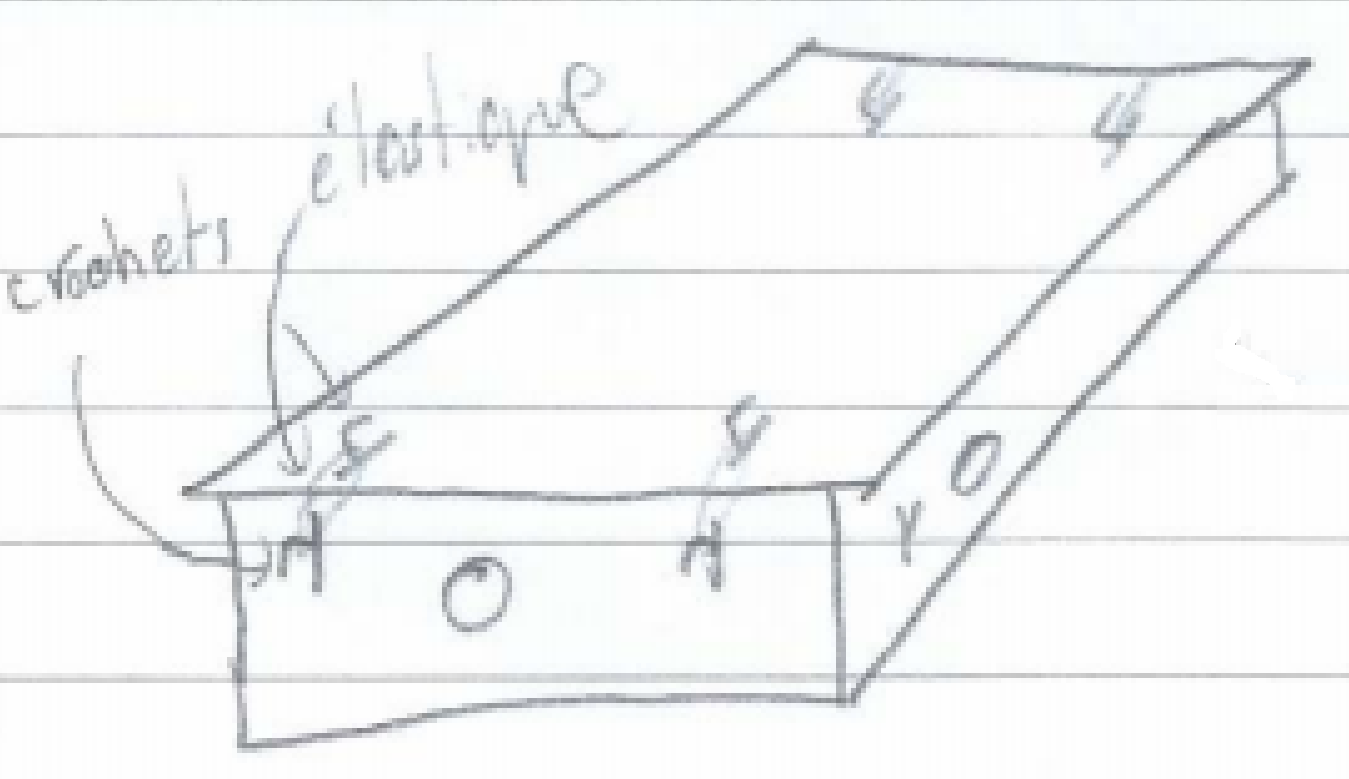 élastique
crochets